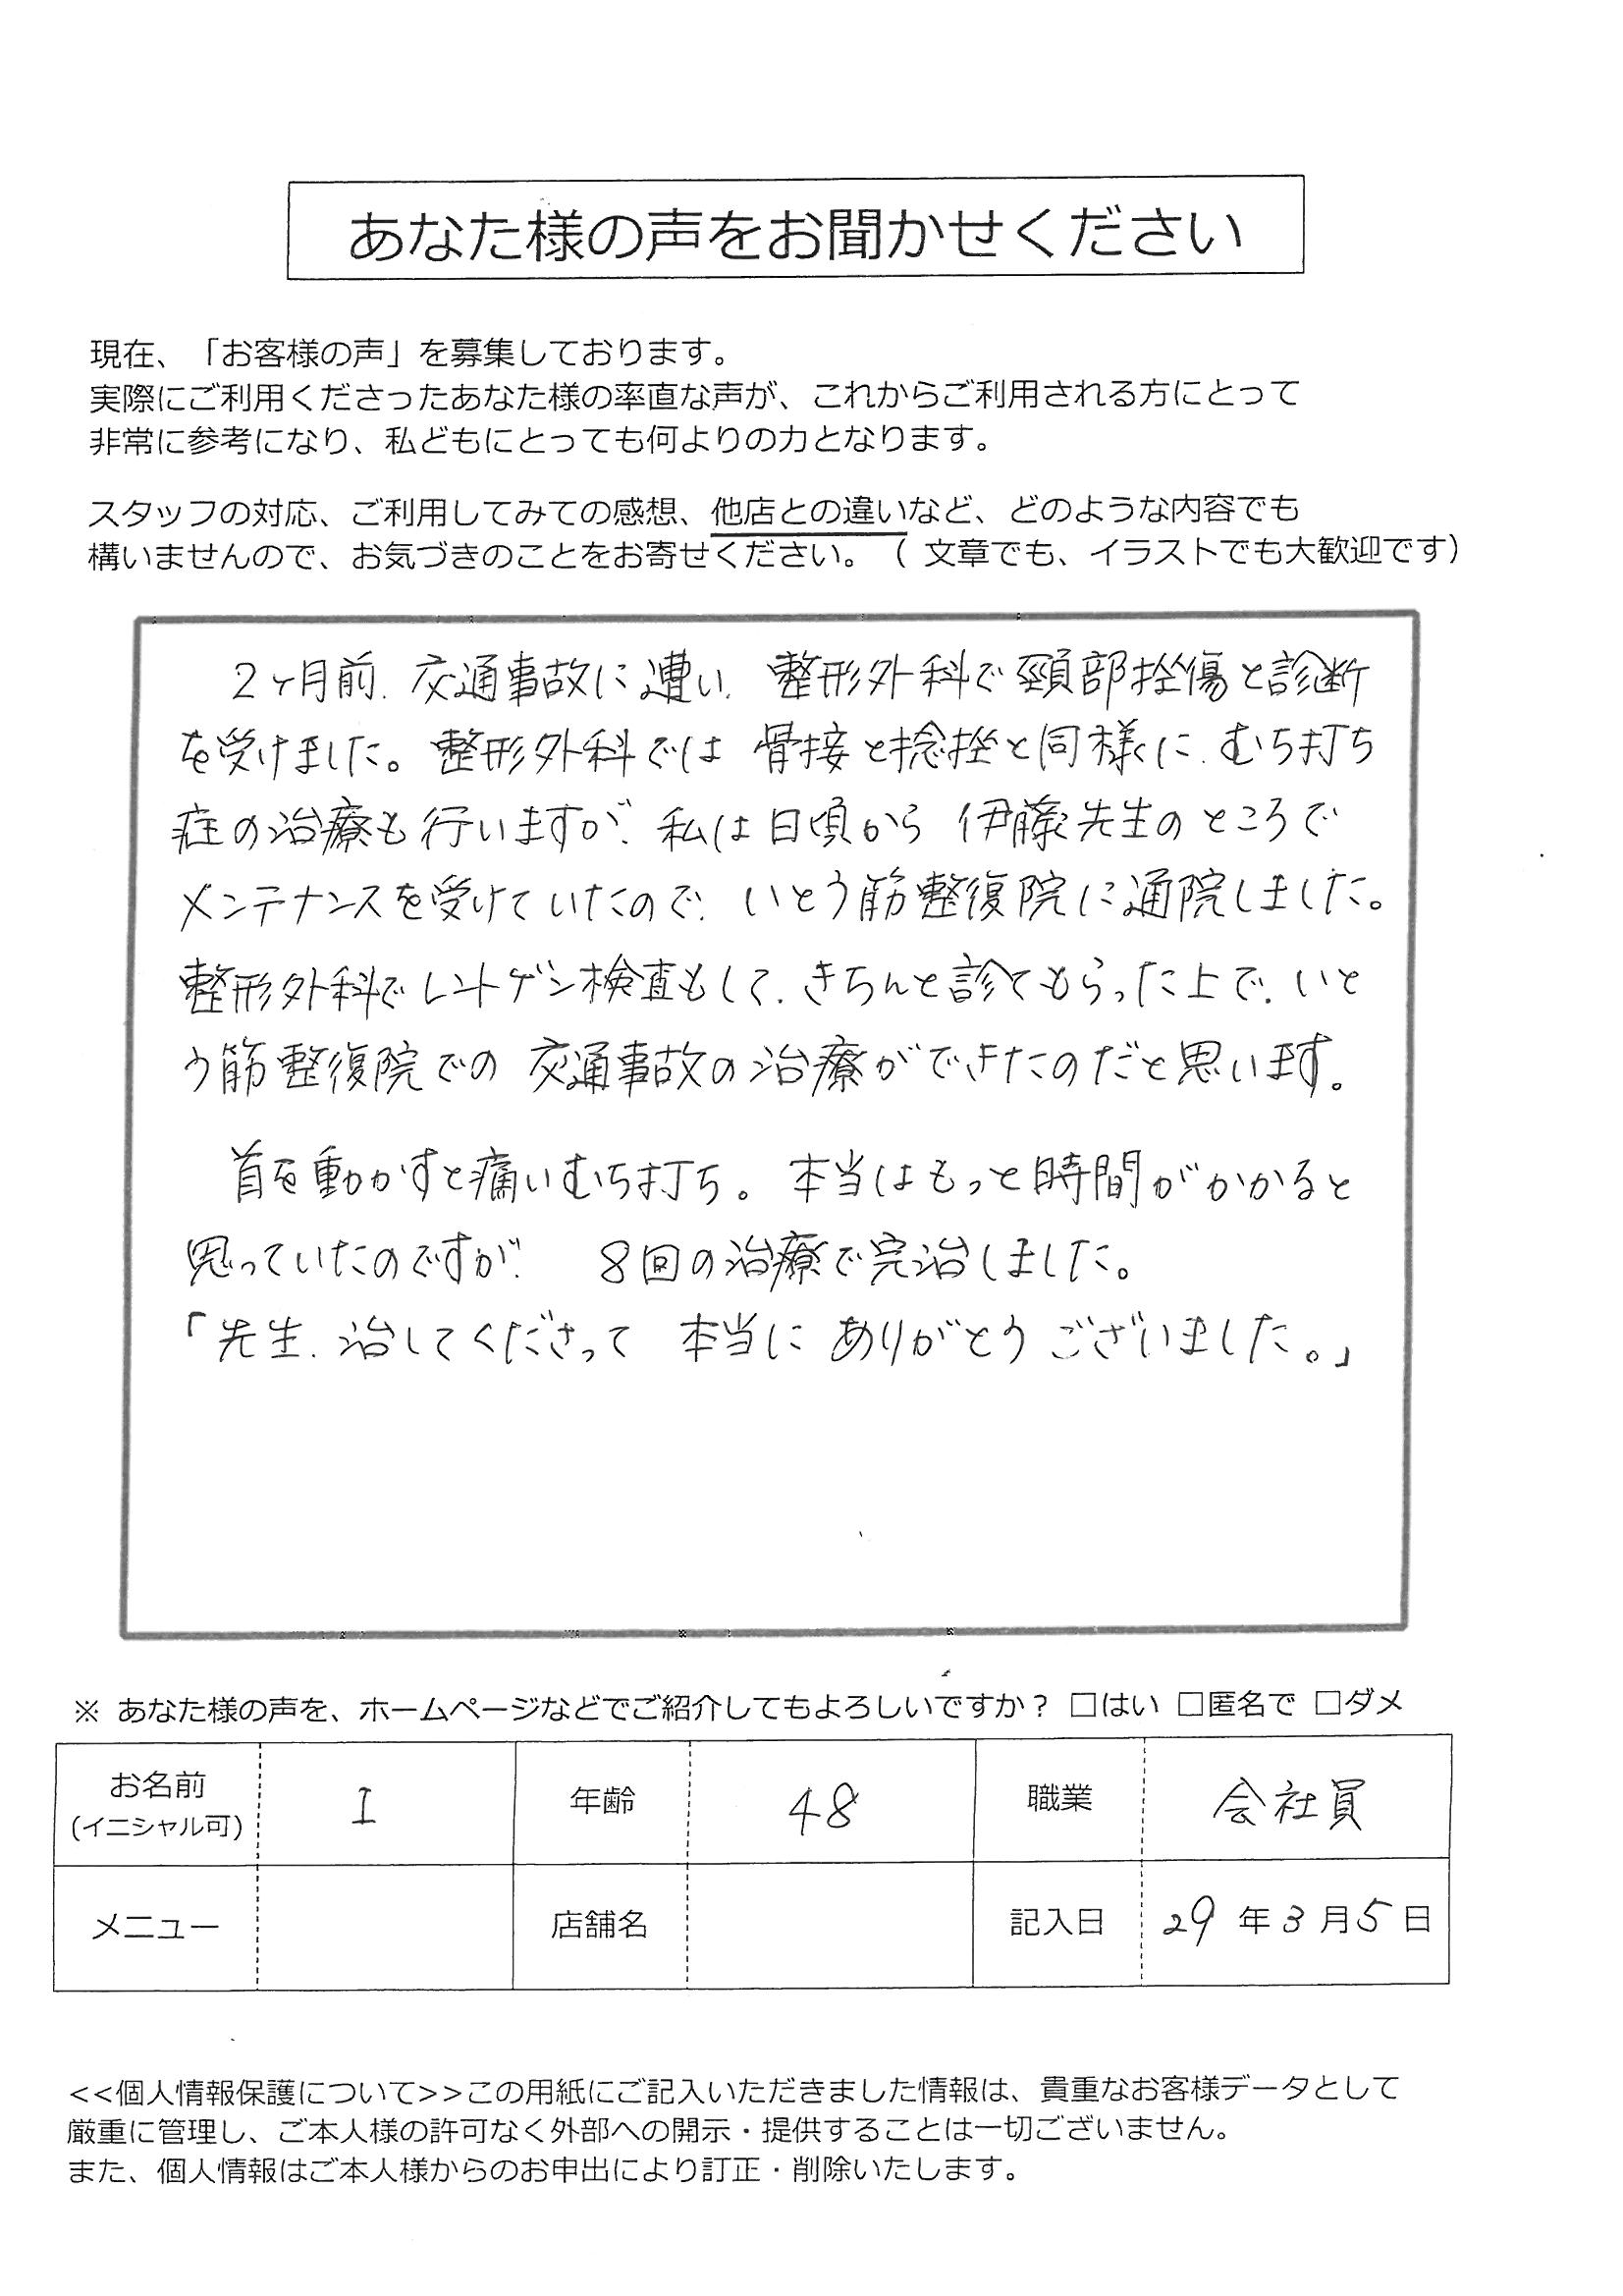 あなた様の声をお聞かせください
現在、「お客様の声」を募集しております。
実際にご利用くださったあなた様の率直な声が、これからご利用される方にとって
非常に参考になり、私どもにとっても何よりの力となります。
スタッフの対応、ご利用してみての感想、他店との違いなど、どのような内容でも
構いませんので、お気づきのことをお寄せください。（ 文章でも、イラストでも大歓迎です）
2ヶ月前、交通事故に遭い、整形外科で頸部挫傷と診断
を受けました。整形外科では 骨接と捻挫と同様に、むち打ち
症の治療も行いますが、私は日頃から 伊藤先生のところで
メンテナンスを受けていたので、いとう筋整復院に通院しました。
整形外科でレントゲン検査もして、きちんと診てもらった上で、いと
う筋整復院での 交通事故の治療ができたのだと思います。
首を動かすと痛いむち打ち。本当はもっと時間がかかると
思っていたのですが、 8回の治療で完治しました。
「先生、治してくださって 本当に ありがとうございました。」
※ あなた様の声を、ホームページなどでご紹介してもよろしいですか？ □はい □匿名で □ダメ
お名前 I 年齢 48 職業 会社員
(イニシャル可)
メニュー 店舗名 記入日 29 年 3 月 5 日
<<個人情報保護について>>この用紙にご記入いただきました情報は、貴重なお客様データとして
厳重に管理し、ご本人様の許可なく外部への開示・提供することは一切ございません。
また、個人情報はご本人様からのお申出により訂正・削除いたします。